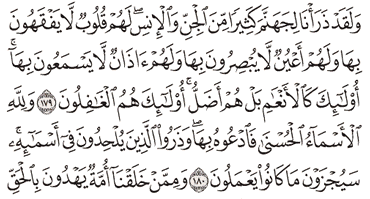 وَلَقَدْ ذَرَأْنَا لِجَهَنَّمَ كَثِيرًا مِّنَ ٱلْجِنِّ وَٱلْإِنسِ ۖ لَهُمْ قُلُوبٌ لَّا يَفْقَهُونَ
بِهَا وَلَهُمْ أَعْيُنٌ لَّا يُبْصِرُونَ بِهَا وَلَهُمْ ءَاذَانٌ لَّا يَسْمَعُونَ بِهَآ ۚ
أُو۟لَٰٓئِكَ كَٱلْأَنْعَٰمِ بَلْ هُمْ أَضَلُّ ۚ أُو۟لَٰٓئِكَ هُمُ ٱلْغَٰفِلُونَ ١٧٩ وَلِلَّهِ
ٱلْأَسْمَآءُ ٱلْحُسْنَىٰ فَٱدْعُوهُ بِهَا ۖ وَذَرُوا۟ ٱلَّذِينَ يُلْحِدُونَ فِىٓ أَسْمَٰٓئِهِۦ ۚ
سَيُجْزَوْنَ مَا كَانُوا۟ يَعْمَلُونَ ١٨٠ وَمِمَّنْ خَلَقْنَآ أُمَّةٌ يَهْدُونَ بِٱلْحَقِّ